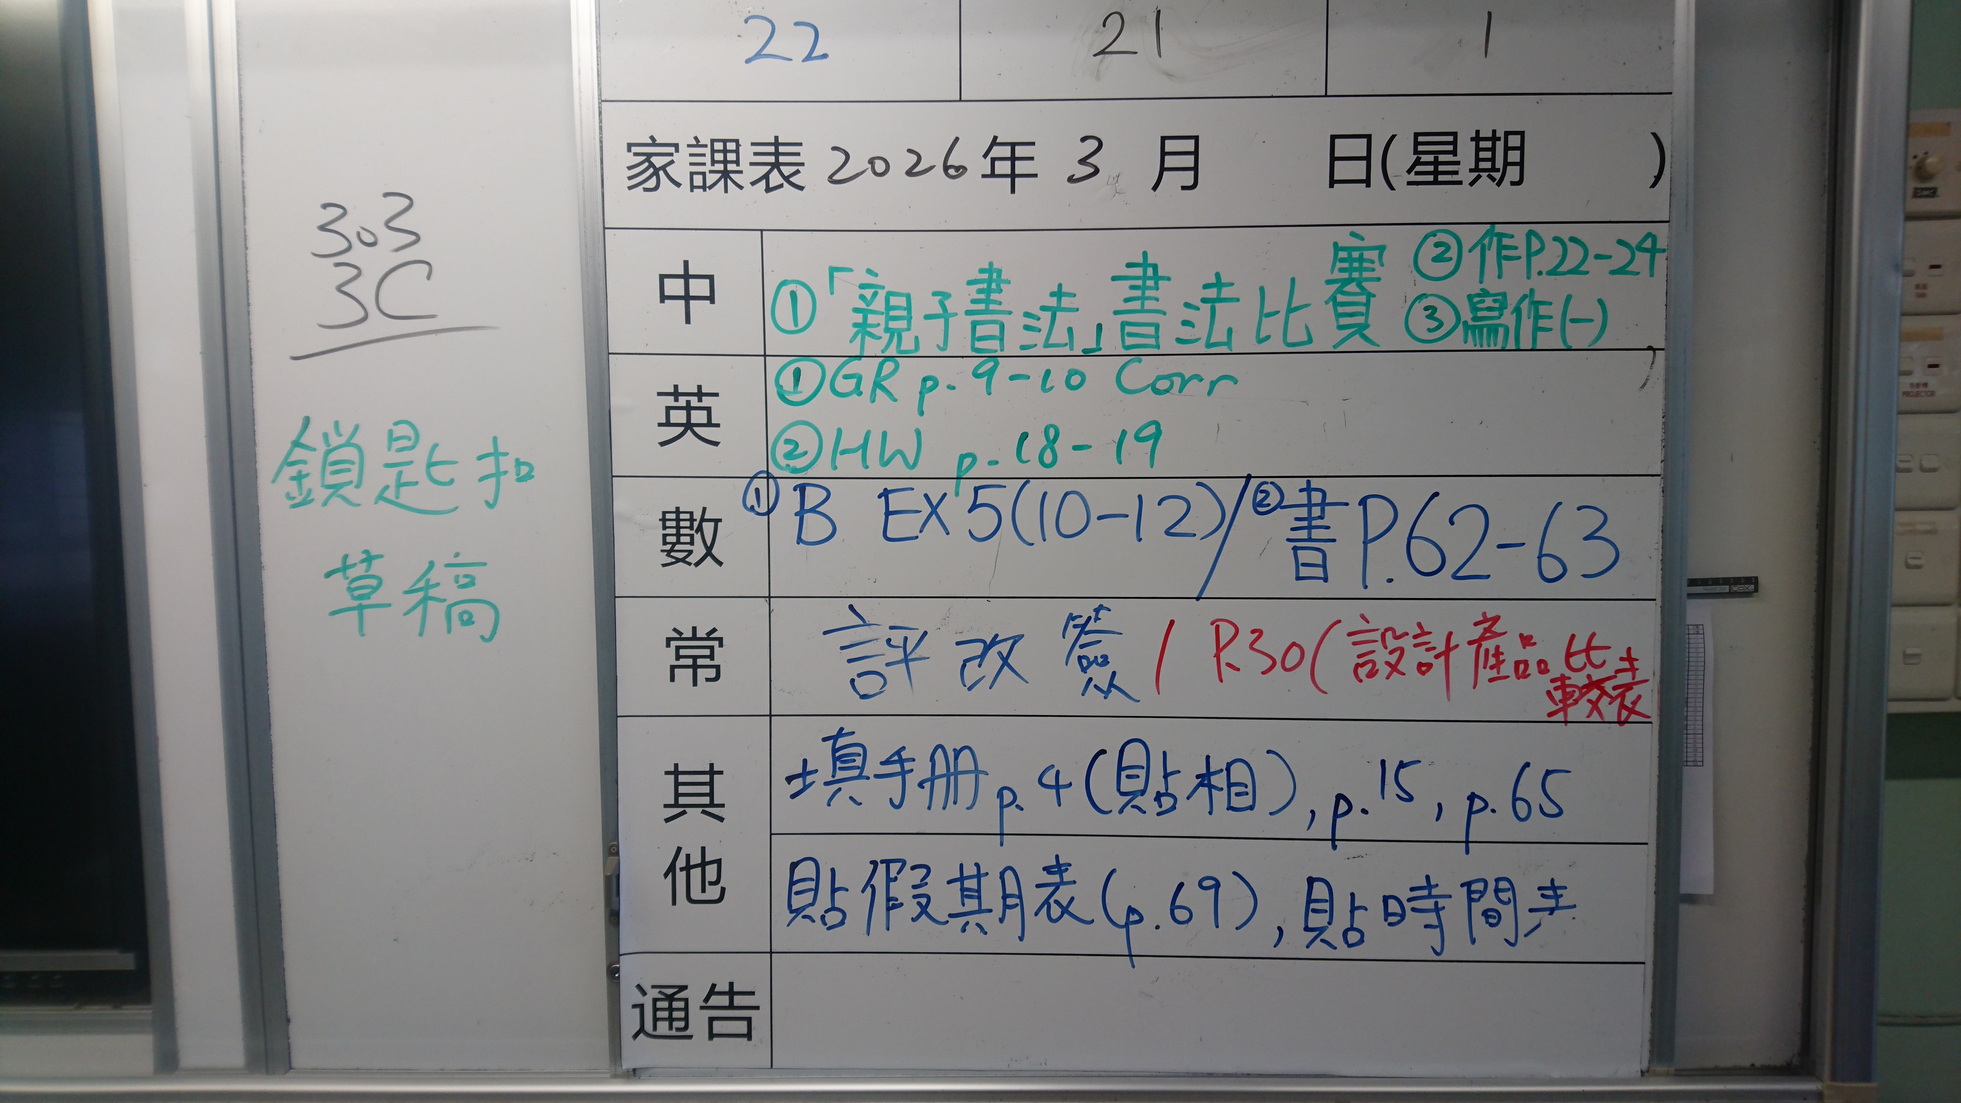 22 21 1
家課表 2026年 3 月 日(星期 )
303
3C
鎖匙扣
草稿
中
①「親子書法」書法比賽 ②作P.22-24
③寫作(一)
英
①GR p.9-10 Corr
②HW p.18-19
數
①B EX5(10-12)/②書P.62-63
常
評改簽/P.30(設計產品比
較表
其他
填手册p.4(貼相), p.15, p.65
貼假期表(p.69), 貼時間表
通告